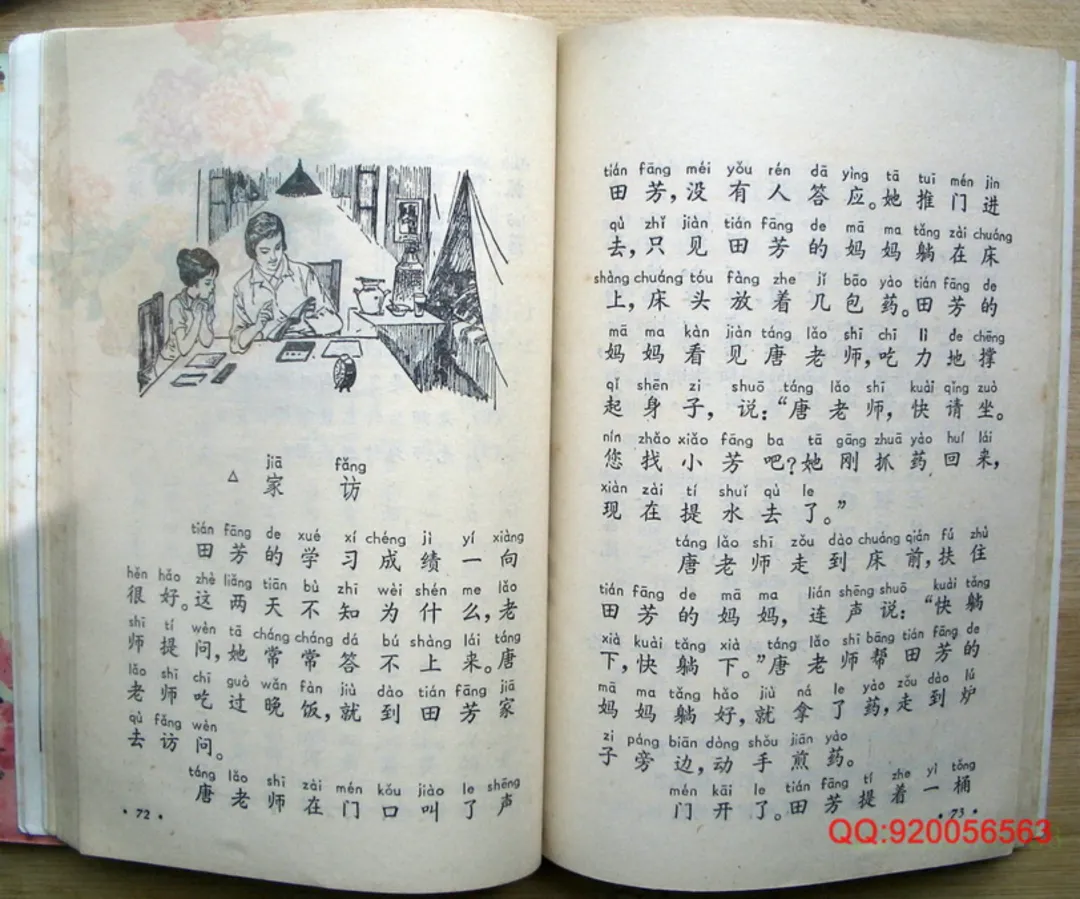 △
jiā fǎng
家 访
tián fāng de xué xí chéng jì yí xiàng
田 芳 的 学 习 成 绩 一 向
hěn hǎo zhè liǎng tiān bù zhī wèi shén me lǎo
很 好。这 两 天 不 知 为 什 么,老
shī tí wèn tā cháng cháng dá bú shàng lái táng
师 提 问,她 常 常 答 不 上 来。唐
lǎo shī chī guò wǎn fàn jiù dào tián fāng jiā
老 师 吃 过 晚 饭,就 到 田 芳 家
qù fǎng wèn
去 访 问。
táng lǎo shī zài mén kǒu jiào le shēng
唐 老 师 在 门 口 叫 了 声
· 72 ·
tián fāng méi yǒu rén dā yìng tā tuī mén jìn
田 芳,没 有 人 答 应。她 推 门 进
qù zhǐ jiàn tián fāng de mā ma tǎng zài chuáng
去,只 见 田 芳 的 妈 妈 躺 在 床
shàng chuáng tóu fàng zhe jǐ bāo yào tián fāng de
上,床 头 放 着 几 包 药。田 芳 的
mā ma kàn jiàn táng lǎo shī chī lì de chēng
妈 妈 看 见 唐 老 师,吃 力 地 撑
qǐ shēn zi shuō táng lǎo shī kuài qǐng zuò
起 身 子,说:“唐 老 师,快 请 坐。
nín zhǎo xiǎo fāng ba tā gāng zhuā yào huí lái
您 找 小 芳 吧?她 刚 抓 药 回 来,
xiàn zài tí shuǐ qù le
现 在 提 水 去 了。”
táng lǎo shī zǒu dào chuáng qián fú zhù
唐 老 师 走 到 床 前,扶 住
tián fāng de mā ma lián shēng shuō kuài tǎng
田 芳 的 妈 妈,连 声 说:“快 躺
xià kuài tǎng xià táng lǎo shī bāng tián fāng de
下,快 躺 下。”唐 老 师 帮 田 芳 的
mā ma tǎng hǎo jiù ná le yào zǒu dào lú
妈 妈 躺 好,就 拿 了 药,走 到 炉
zi páng biān dòng shǒu jiān yào
子 旁 边,动 手 煎 药。
mén kāi le tián fāng tí zhe yì tǒng
门 开 了。田 芳 提 着 一 桶
· 73 ·
QQ:920056563